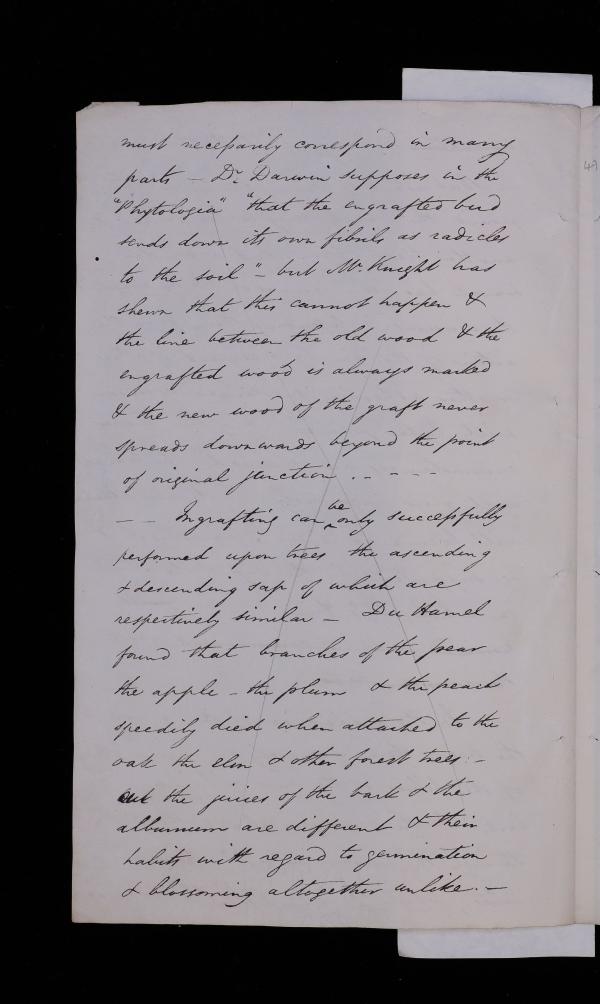 must necessarily correspond in many
parts – Dr. Darwin supposes in the
"Phytologia" "that the engrafted bud
sends down its own fibrils as radicles
to the soil" – but Mr. Knight has
shewn that this cannot happen &
the line between the old wood & the
engrafted wood is always marked
& the new wood of the graft never
spreads downwards beyond the point
of original junction .. – – –
– – Ingrafting can be only successfully
performed upon trees the ascending
& descending sap of which are
respectively similar – Du Hamel
found that branches of the pear
the apple – the plum & the peach
speedily died when attached to the
oak the elm & other forest trees: –
the juices of the bark & the
alburnum are different & their
habits with regard to germination
& blossoming altogether unlike. –
49